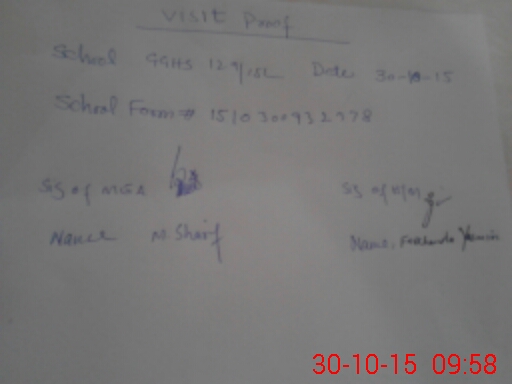 Visit Proof
School GGHS 12-9/15L Date 30-10-15
School Form # 1510300932978
Sig of MEA Sig of H/M
Name M. Sharif Name. Farkhanda Yasmin
30-10-15 09:58